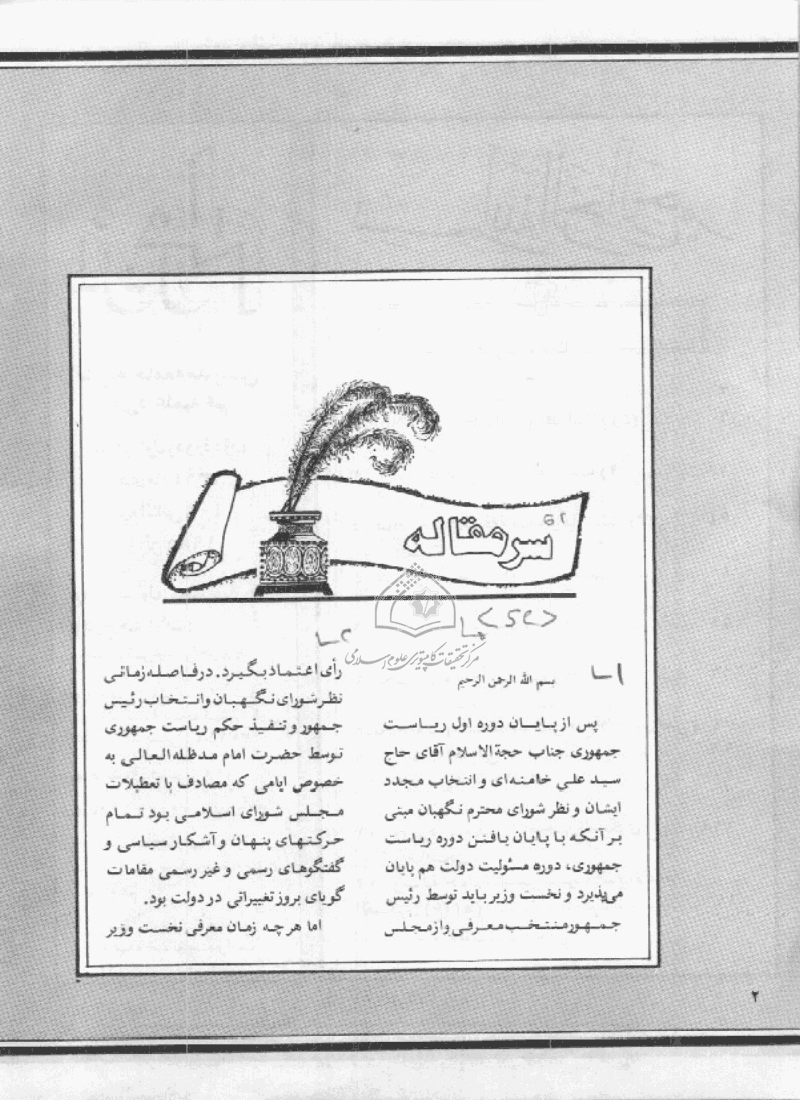 سرمقاله
مرکز تحقیقات کامپیوتری علوم اسلامی
۱-
بسم الله الرحمن الرحیم
پس از پایان دوره اول ریاست
جمهوری جناب حجة الاسلام آقای حاج
سید علی خامنه‌ای و انتخاب مجدد
ایشان و نظر شورای محترم نگهبان مبنی
بر آنکه با پایان یافتن دوره ریاست
جمهوری، دوره مسئولیت دولت هم پایان
می‌پذیرد و نخست وزیر باید توسط رئیس
جمهور منتخب معرفی و از مجلس
۲-
رأی اعتماد بگیرد. در فاصله زمانی
نظر شورای نگهبان و انتخاب رئیس
جمهور و تنفیذ حکم ریاست جمهوری
توسط حضرت امام مدظله العالی به
خصوص ایامی که مصادف با تعطیلات
مجلس شورای اسلامی بود تمام
حرکتهای پنهان و آشکار سیاسی و
گفتگوهای رسمی و غیر رسمی مقامات
گویای بروز تغییراتی در دولت بود.
اما هر چه زمان معرفی نخست وزیر
۲